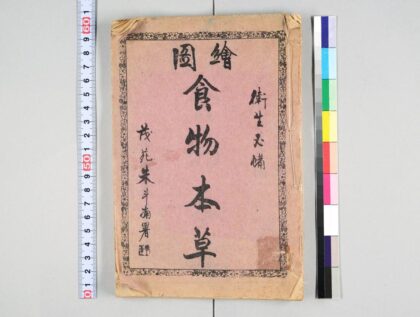 衛生必備
繪圖
食物本草
茂苑朱斗南署